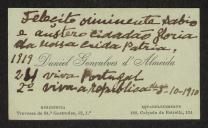 Felecito iminente sabio
e austero cidadão gloria
da nossa cuida Patria.
1919
Daniel Gonçalves d'Almeida
viva Portugal
2º viva a republica 5-10-1910
RESIDENCIA
Travessa de St.ª Gertrudes,
ESTABELECIMENTO
Calçada da Estrella, 131